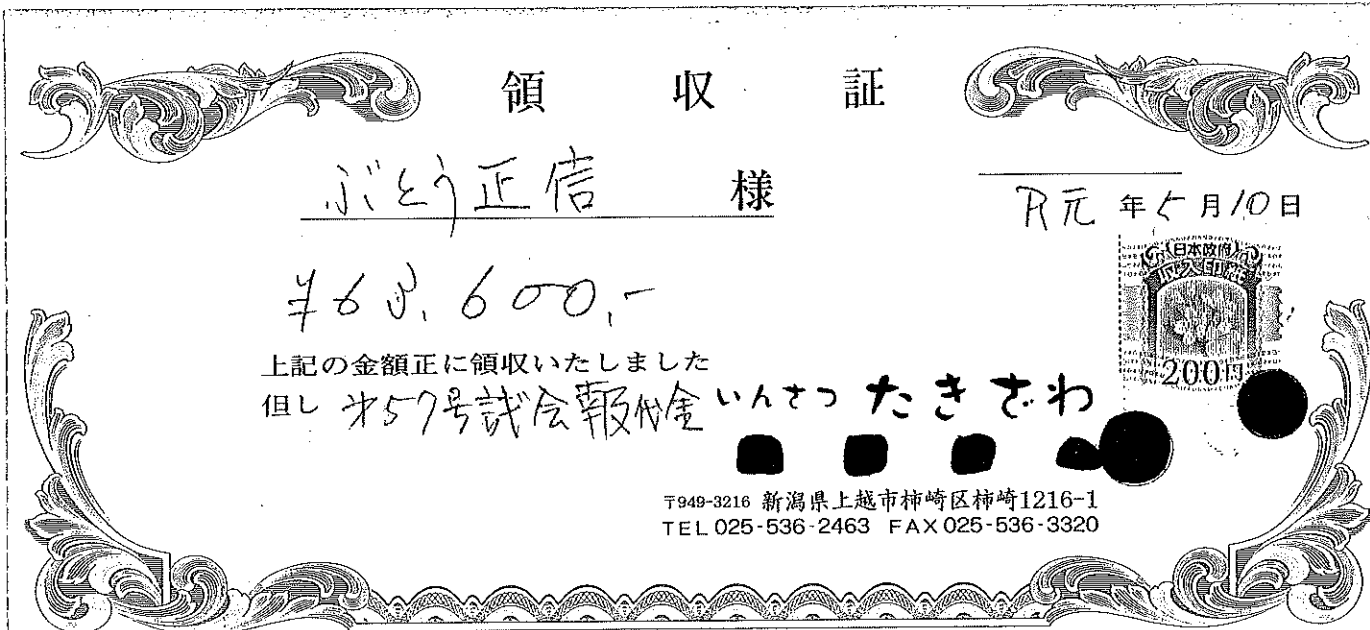 領収証
ぶとう正信 様
R元年5月10日
日本政府
収入印紙
200円
上記の金額正に領収いたしました
但し 才57号議会報代金
いんさつ たきざわ
〒949-3216 新潟県上越市柿崎区柿崎1216-1
TEL 025-536-2463 FAX 025-536-3320